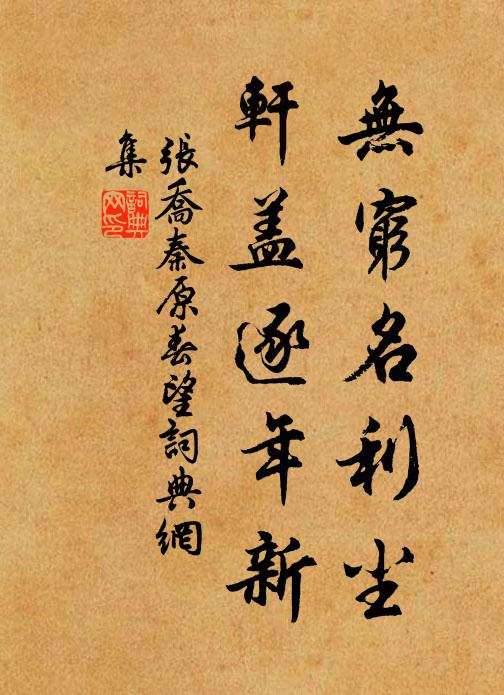 無窮名利尘
軒盖逐年新
張喬秦原春望詞典網
集
詞典
网印